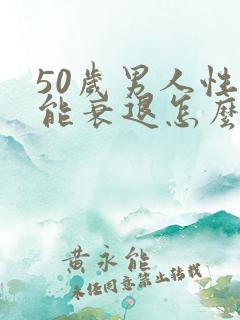 50歲男人性
能衰退怎麼
黃永能
未经同意禁止转载